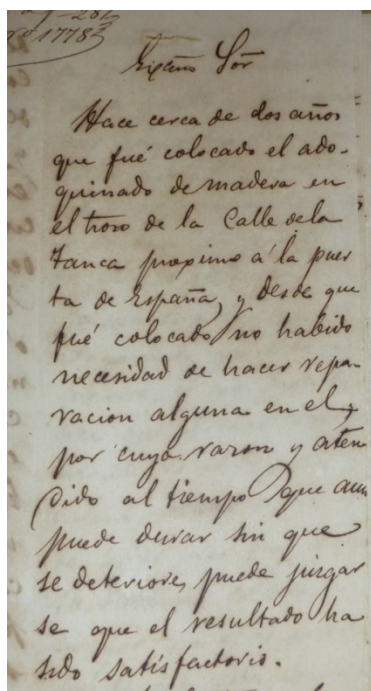 nº 1778
Excmo Sor
Hace cerca de dos años
que fué colocado el ado-
quinado de madera en
el troso de la Calle dela
Tanca proximo á la puer
ta de España, y desde que
fué colocado no habido
necesidad de hacer repa-
racion alguna en el,
por cuya razon y aten
dido al tiempo que aun
puede durar sin que
se deteriore, puede juzgar
se que el resultado ha
sido satisfactorio.